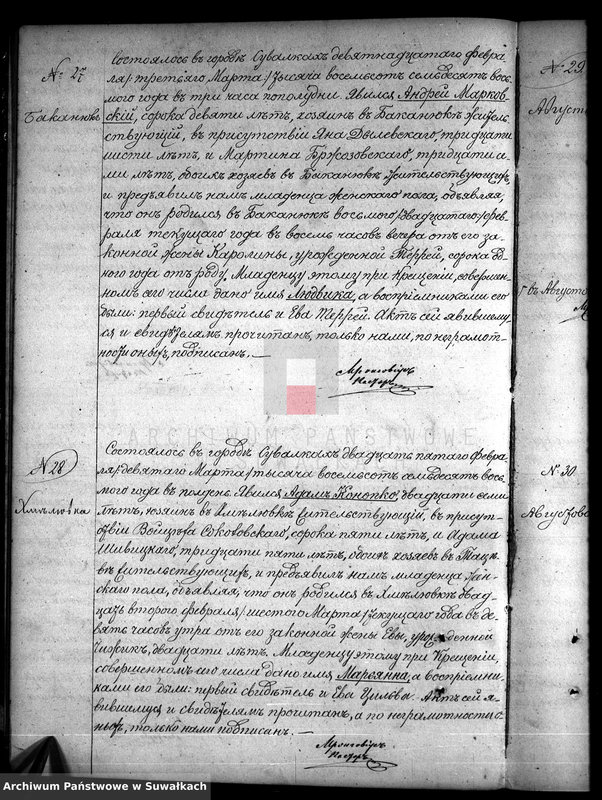 № 27
Баканюкъ
Состоялось въ городѣ Сувалкахъ девятнадцатаго февра-
ля /третьяго Марта/ тысяча восемьсотъ семьдесятъ вось-
мого года въ три часа пополудни. Явился Андрей Марков-
скій, сорока девяти лѣтъ, хозяинъ въ Баканюкъ житель-
ствующій, въ присутствіи Яна Дылевскаго, тридцати
шести лѣтъ, и Мартина Бржозовскаго, тридцати
лѣтъ, обоихъ хозяевъ въ Баканюкъ жительствующихъ,
и предъявилъ намъ младенца женскаго пола, объявляя,
что онъ родился въ Баканюкъ восьмого /двадцатаго/ фев-
раля текущаго года въ восемь часовъ вечера отъ его за-
конной жены Каролины, урожденной Террей, сорока од-
ного года отъ роду. Младенцу этому при Крещеніи, совершен-
номъ сего числа дано имя Людвика, а воспріемниками его
были: первый свидѣтель и Ева Террей. Актъ сей явившему-
ся и свидѣтелямъ прочитанъ, только нами, по неграмот-
ности оныхъ, подписанъ. —
ARCHIWUM PAŃSTWOWE
№ 28
Состоялось въ городѣ Сувалкахъ двадцать пятаго февра-
ля /девятаго Марта/ тысяча восемьсотъ семьдесятъ вось-
мого года въ полдень. Явился Адамъ Конопко, двадцати семи
лѣтъ, хозяинъ въ жительствующій, въ присут-
ствіи Войцѣха Соколовскаго, сорока пяти лѣтъ, и Адама
Шивицкаго, тридцати пяти лѣтъ, обоихъ хозяевъ въ
жительствующихъ, и предъявилъ намъ младенца жен-
скаго пола, объявляя, что онъ родился въ двад-
цать второго февраля /шестого Марта/ текущаго года въ де-
вять часовъ утра отъ его законной жены Евы, урожденной
двадцати лѣтъ. Младенцу этому при Крещеніи,
совершенномъ сего числа дано имя Маріянна, а воспріемни-
ками его были: первый свидѣтель и Ева Актъ сей я-
вившемуся и свидѣтелямъ прочитанъ, а по неграмотности о-
ныхъ, только нами подписанъ. —
№ 29
Августо
въ Августо
№ 30
Августова
Archiwum Państwowe w Suwałkach